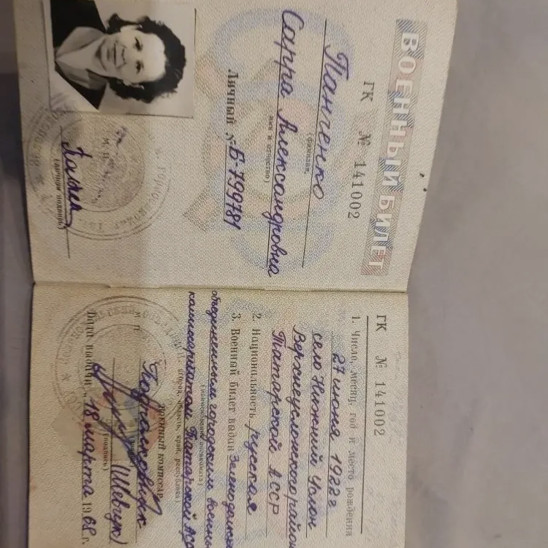 ВОЕННЫЙ БИЛЕТ
ГК № 141002
Панченко
(фамилия,
Сарра Александровна
имя и отчество)
Личный № Б-799784
(личная подпись)
ГК № 141002
1. Число, месяц, год и место рождения
27 июня 1922г
село Нижний Услон
Верхнеуслонского район
Татарской АССР
2. Национальность русская
3. Военный билет выдан Зеленодольск
объединенным городским военны
комиссариатом Татарской АССР
Военный комиссар
Подполковник
(Шевчук)
(подпись)
Дата выдачи „18" марта 1968 г.